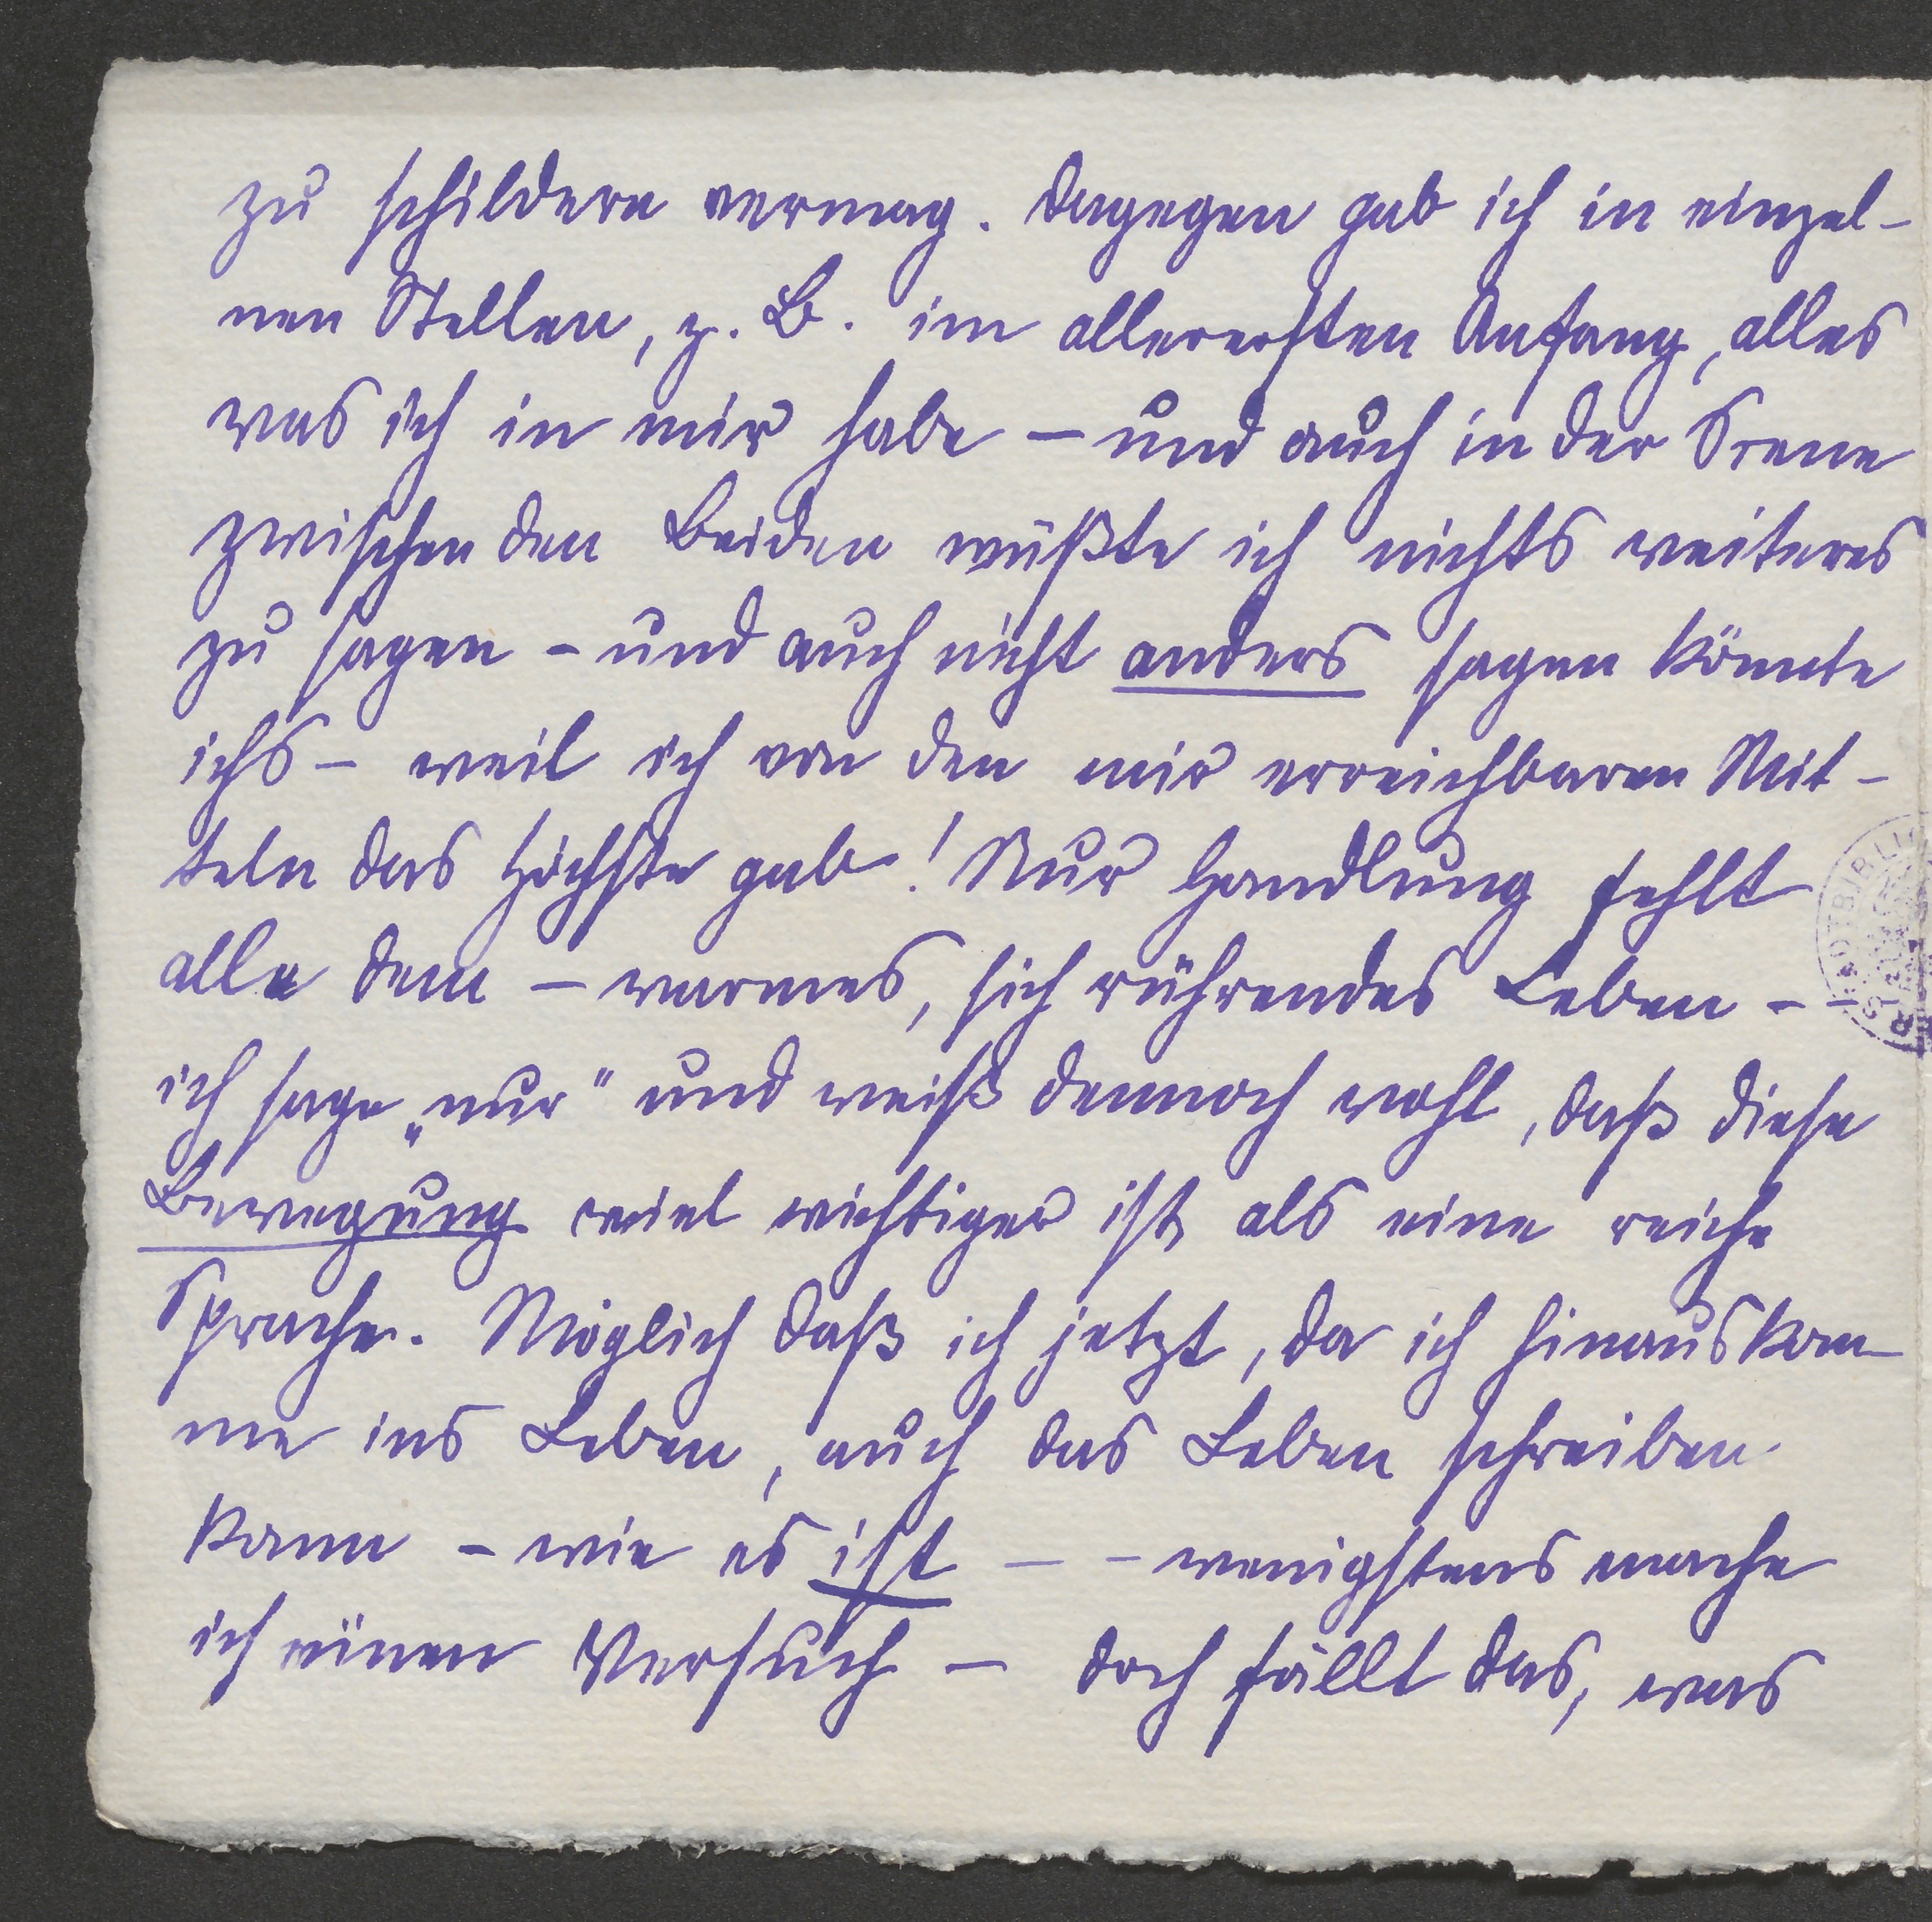 zu schildern vermag. Dagegen gab ich in einzel-
nen Stellen, z. B. im allerersten Anfang, alles
was ich in mir habe – und auch in der Scene
zwischen den Beiden wüßte ich nichts weiteres
zu sagen – und auch nicht anders sagen könnte
ichs – weil ich von den mir erreichbaren Mit-
teln das Höchste gab! Nur Handlung fehlt
alle dem – warmes, sich rührendes Leben – –
ich sage „nur“ und weiß dennoch wohl, daß diese
Bewegung viel wichtiger ist, als eine reiche
Sprache. Möglich daß ich jetzt, da ich hinauskom-
me ins Leben, auch das Leben schreiben
kann – wie es ist – – wenigstens mache
ich einen Versuch – doch fällt das, was